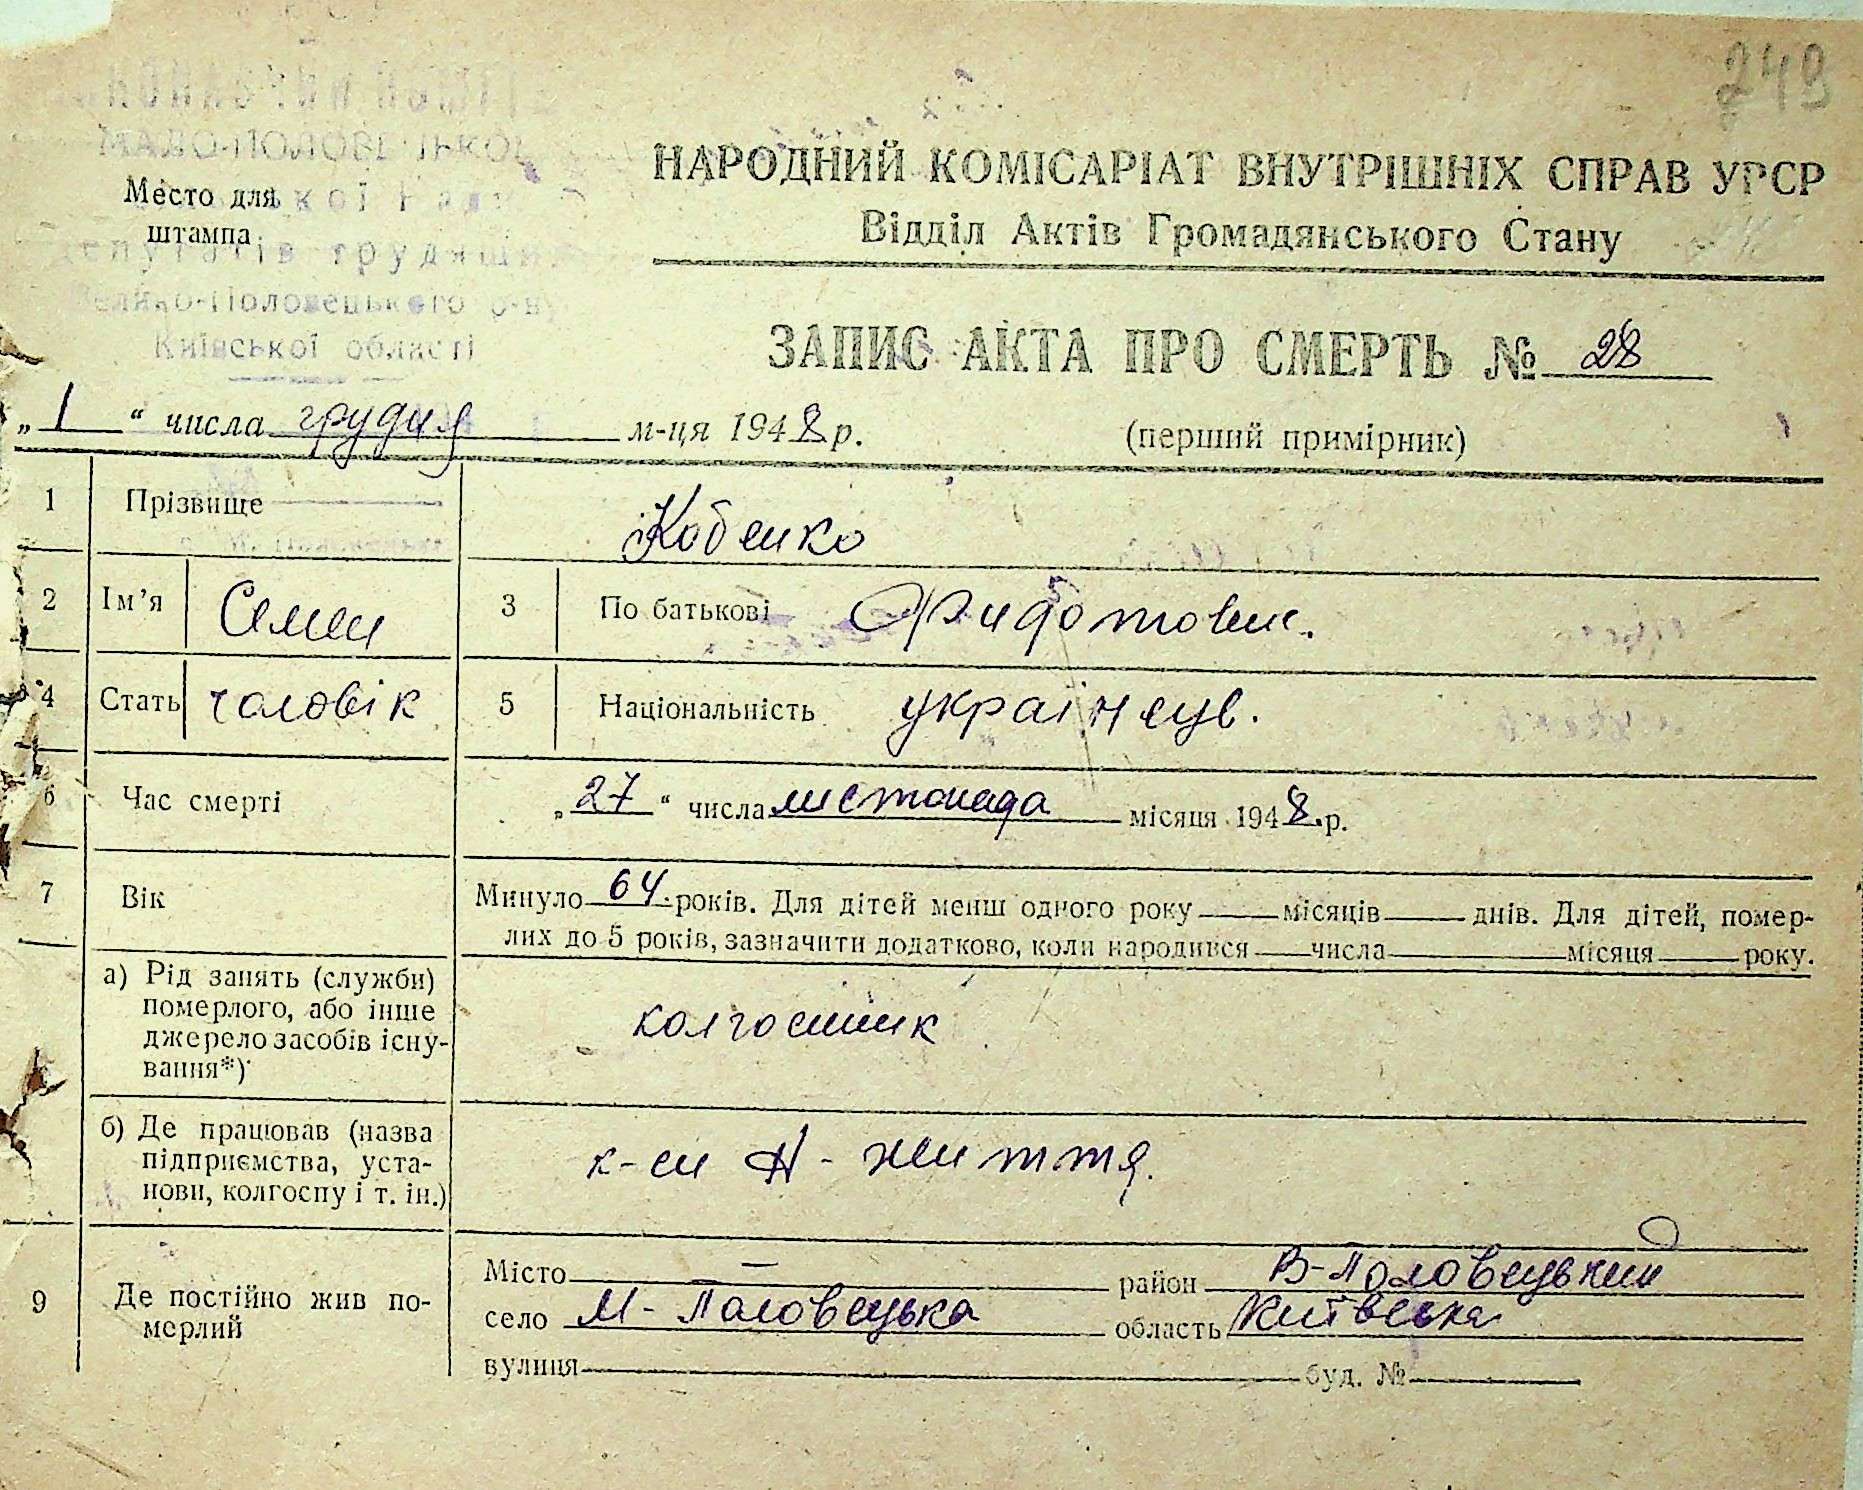 249
МАЛО-ПОЛОВЕЦЬКОЇ
Место для
штампа
депутатів трудящих
Велико-Половецького р-ну
Київської області
НАРОДНИЙ КОМІСАРІАТ ВНУТРІШНІХ СПРАВ УРСР
Відділ Актів Громадянського Стану
ЗАПИС АКТА ПРО СМЕРТЬ № 28
„1“ числа грудня м-ця 1948 р.
(перший примірник)
1 Прізвище Кобенко
2 Ім’я Семен 3 По батькові Федотович.
4 Стать чоловік 5 Національність українець.
6 Час смерті „27“ числа листопада місяця 1948.р.
7 Вік Минуло 64. років. Для дітей менш одного року місяців днів. Для дітей, помер-
лих до 5 років, зазначити додатково, коли народився числа місяця року.
а) Рід занять (служби)
померлого, або інше
джерело засобів існу-
вання*)
колгоспник
б) Де працював (назва
підприємства, уста-
нови, колгоспу і т. ін.)
к-сп Н-життя.
9 Де постійно жив по-
мерлий
Місто — район В-Половецький
село М-Половецька область Київська
вулиця буд. №